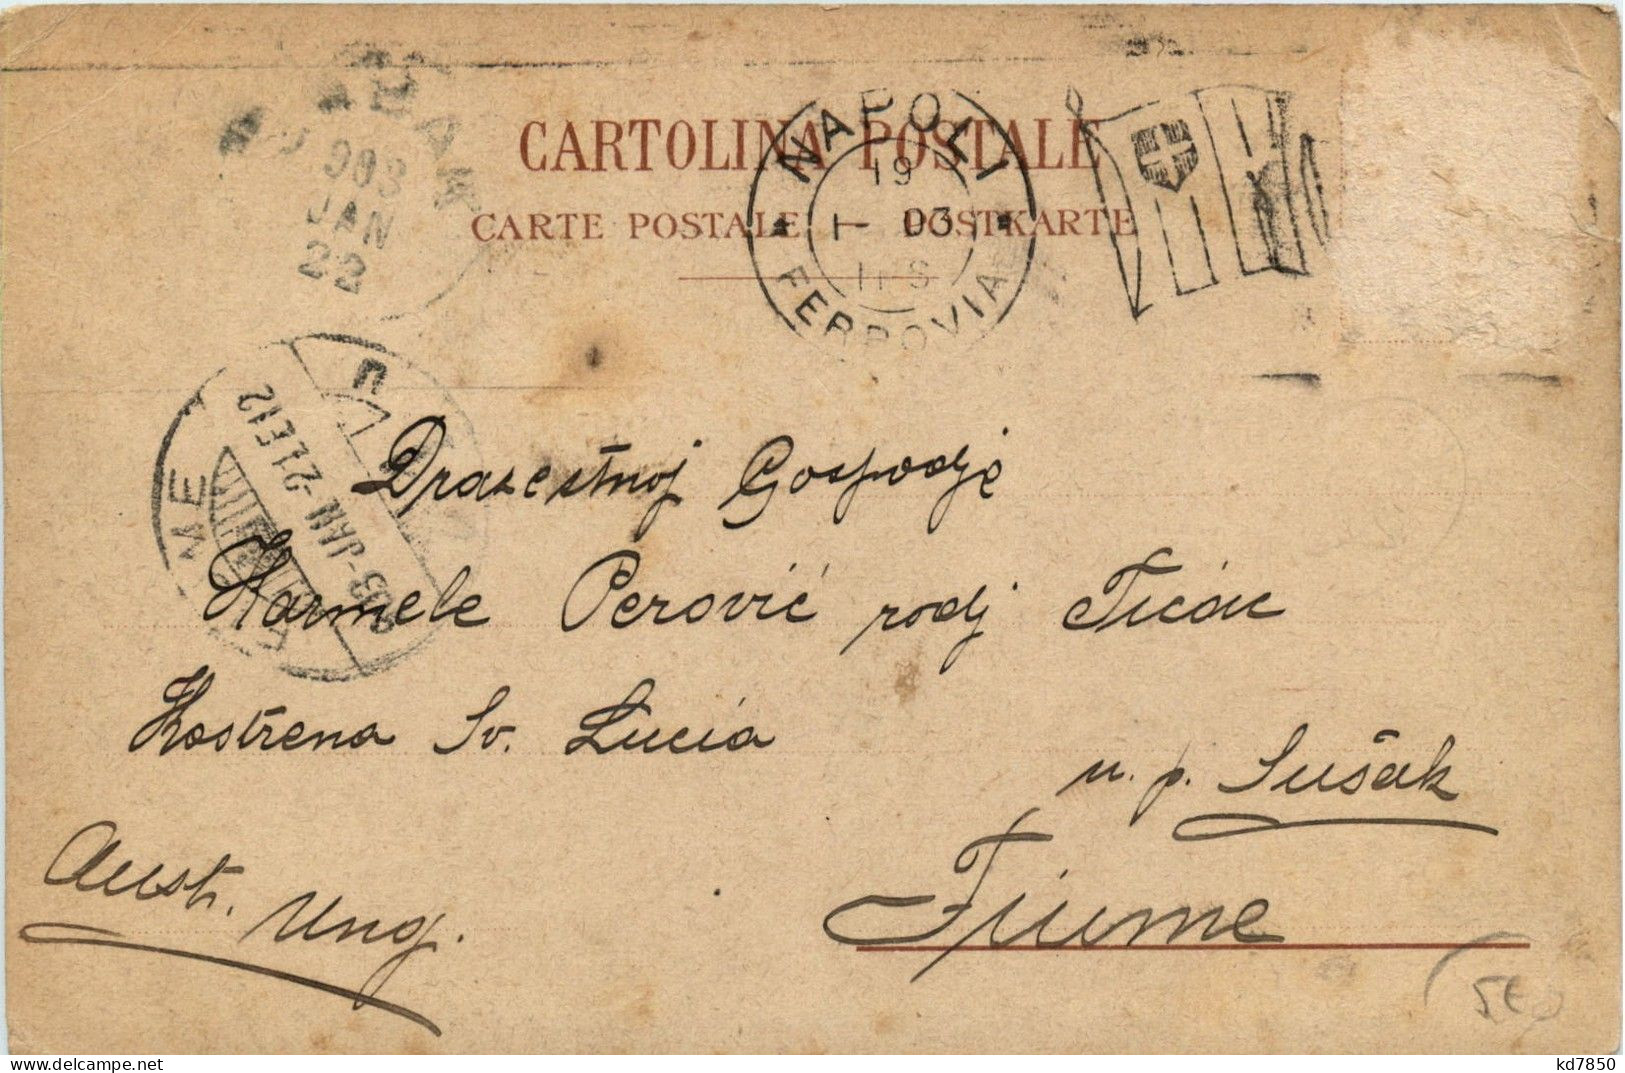 CARTOLINA POSTALE
CARTE POSTALE POSTKARTE
NAPOLI
19
1 - 03
11 S
FERROVIA
903
JAN
22
903-JAN-21 E12
FIUME
Drazestnoj Gospodje
Karmele Perović rodj Tićac
Kostrena Sv. Lucia
u. p. Sušak
Fiume
Aust. Ung.
5€
kd7850